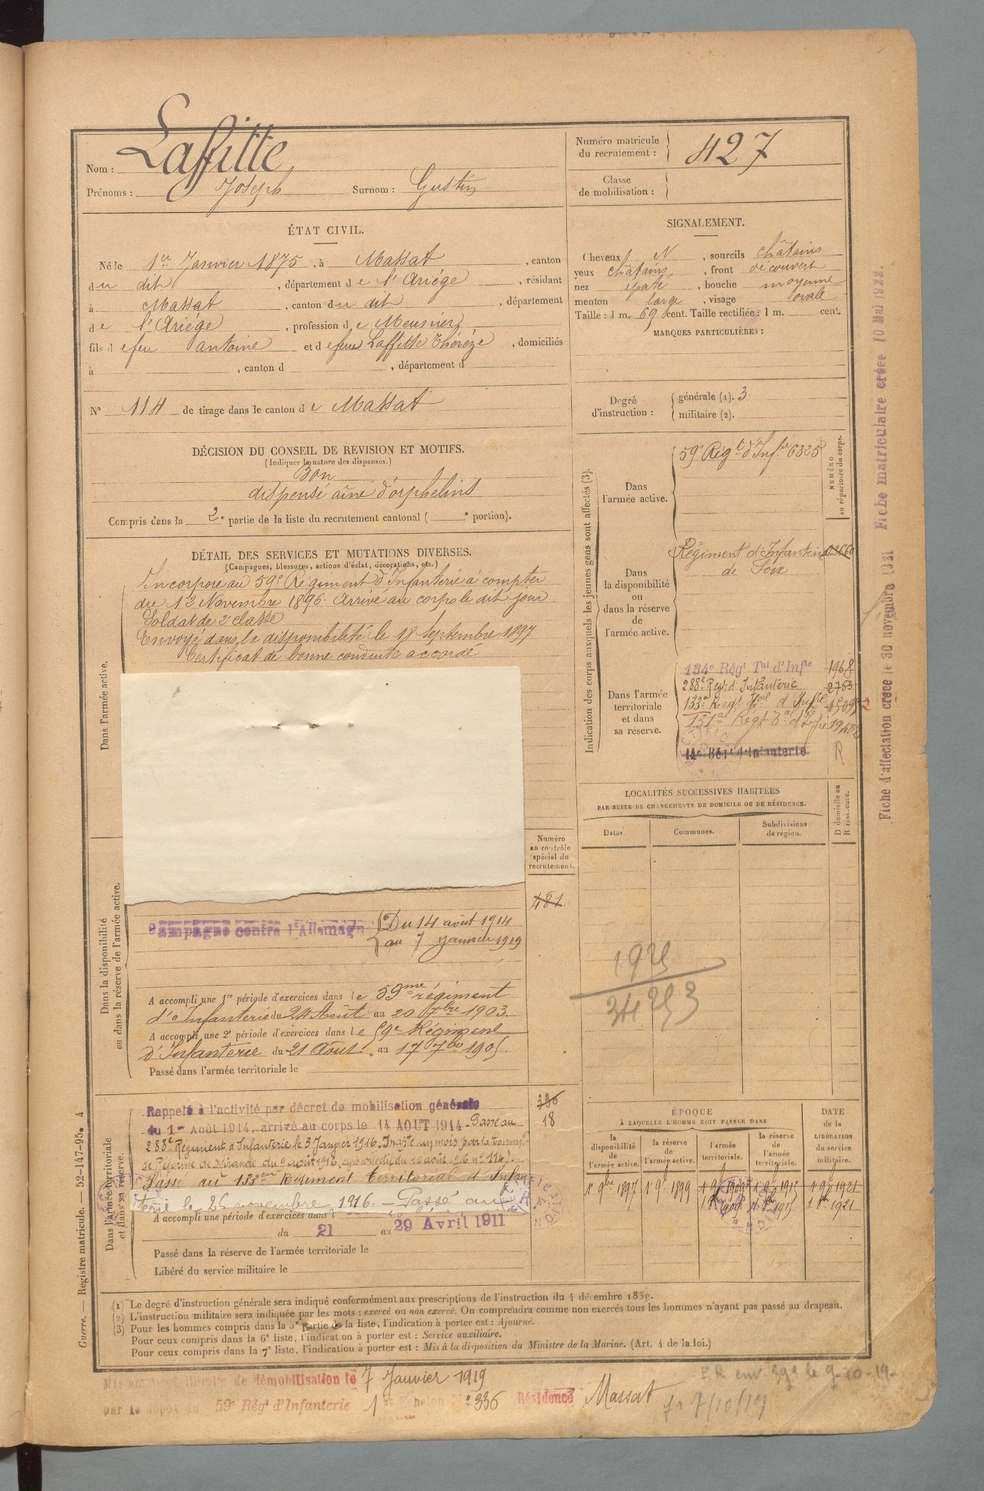 Nom : Laffitte
Prénoms : Joseph Surnom : Gustin
Numéro matricule du recrutement : 427
Classe de mobilisation :
ÉTAT CIVIL.
Né le 1er Janvier 1875, à Massat, canton
du dit, département de l'Ariège, résidant
à Massat, canton du dit, département
de l'Ariège, profession de Meunier,
fils d efeu antoine et d efeue Laffitte Thérèze, domiciliés
à , canton d , département d
N° 114 de tirage dans le canton d e Massat
DÉCISION DU CONSEIL DE REVISION ET MOTIFS.
(Indiquer la nature des dispenses.)
Bon
dispensé aîné d'orphelins
Compris dans la 2e partie de la liste du recrutement cantonal ( e portion).
SIGNALEMENT.
Cheveux N , sourcils châtains
yeux châtains , front découvert
nez épaté , bouche moyenne
menton large , visage ovale
Taille : 1 m. 69 cent. Taille rectifiée : 1 m. cent.
MARQUES PARTICULIÈRES :
Degré d'instruction : générale (1). 3
militaire (2).
Indication des corps auxquels les jeunes gens sont affectés (3).
NUMÉRO au répertoire du corps.
Dans l'armée active.
59e Régt d'Infie 6325
Dans la disponibilité ou dans la réserve de l'armée active.
Régiment d'Infanterie
de Foix
Dans l'armée territoriale et dans sa réserve.
134e Régt Tal d'Infie 1968
288e Regt d'Infanterie 2753
133e Regt d'Infie
14e Régt d'Infanterie R
DÉTAIL DES SERVICES ET MUTATIONS DIVERSES.
(Campagnes, blessures, actions d'éclat, décorations, etc.)
Dans l'armée active.
Incorporé au 59e Régiment d'Infanterie à compter
du 12 Novembre 1896. Arrivé au corps le dit jour
Soldat de 2e classe
Envoyé dans la disponibilité le 18 Septembre 1897
Certificat de bonne conduite accordé
Numéro au contrôle spécial du recrutement.
481
Dans la disponibilité ou dans la réserve de l'armée active.
Campagne contre l'Allemagne Du 14 août 1914
au 7 janvier 1919
A accompli une 1re période d'exercices dans le 59me régiment
d'Infanterie du 24 Août au 20 7bre 1903.
A accompli une 2e période d'exercices dans le 59e Régiment
d'Infanterie du 21 Août au 17 7bre 1905.
Passé dans l'armée territoriale le
LOCALITÉS SUCCESSIVES HABITÉES
PAR SUITE DE CHANGEMENTS DE DOMICILE OU DE RÉSIDENCE.
Dates. Communes. Subdivisions de région. D domicile ou R résidence.
Dans l'armée territoriale et dans sa réserve.
Rappelé à l'activité par décret de mobilisation générale
du 1er Août 1914, arrivé au corps le 14 AOUT 1914. Passé au
288e Régiment d'Infanterie le 3 Janvier 1916.
Passé au 133eme Régiment Territorial d'Infan
terie le 26 novembre 1916 - Passé au
336
18
A accompli une période d'exercices dans
du 21 au 29 Avril 1911
Passé dans la réserve de l'armée territoriale le
Libéré du service militaire le
ÉPOQUE
À LAQUELLE L'HOMME DOIT PASSER DANS
la disponibilité de l'armée active. la réserve de l'armée active. l'armée territoriale. la réserve de l'armée territoriale.
DATE de la LIBÉRATION du service militaire.
1er 9bre 1897 1er 9. 1899
1921
(1) Le degré d'instruction générale sera indiqué conformément aux prescriptions de l'instruction du 4 décembre 1889.
(2) L'instruction militaire sera indiquée par les mots : exercé ou non exercé. On comprendra comme non exercés tous les hommes n'ayant pas passé au drapeau.
(3) Pour les hommes compris dans la 5e partie de la liste, l'indication à porter est : Ajourné.
Pour ceux compris dans la 6e liste, l'indication à porter est : Service auxiliaire.
Pour ceux compris dans la 7e liste, l'indication à porter est : Mis à la disposition du Ministre de la Marine. (Art. 4 de la loi.)
Guerre. — Registre matricule. — 52-147-95. 4
illimité de démobilisation le 7 Janvier 1919
par le dépôt du 59e Régt d'Infanterie 1er Echelon N° 336 Résidence Massat
Fiche d'affectation créée le 30 novembre 1931 Fiche matriculaire créée 10 Mai 1922.